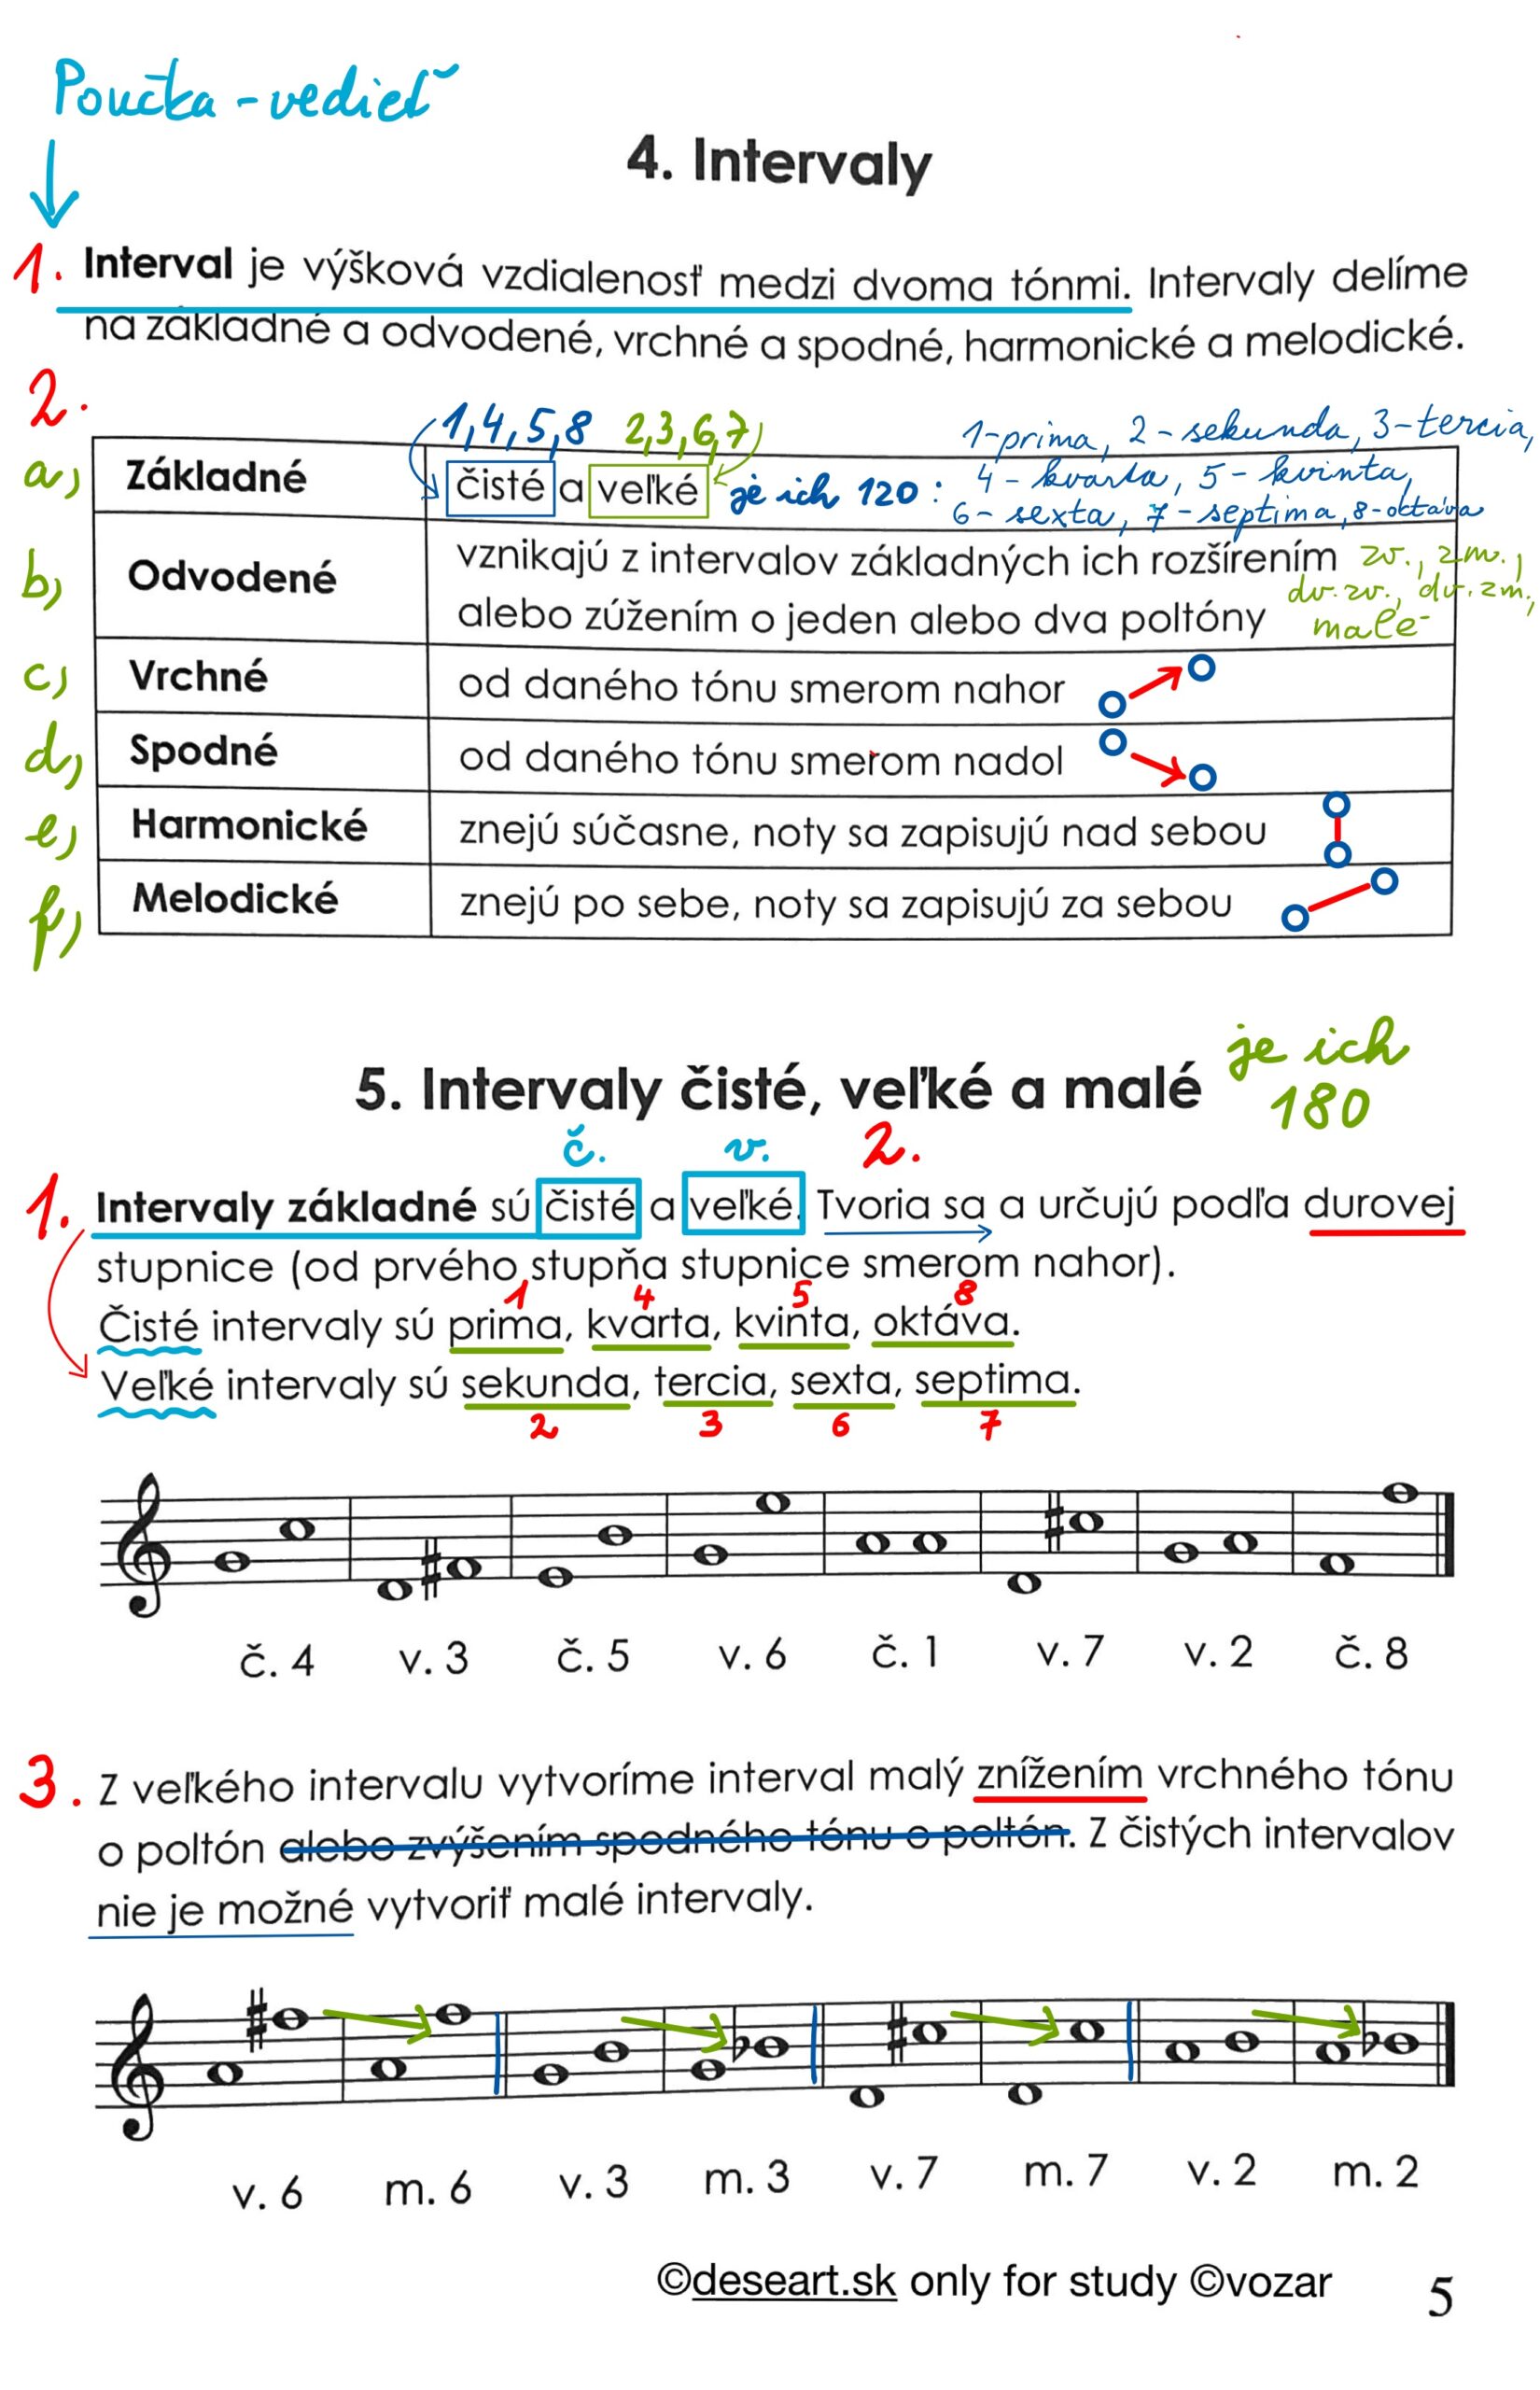 Poučka - vedieť
4. Intervaly
1. Interval je výšková vzdialenosť medzi dvoma tónmi. Intervaly delíme
na základné a odvodené, vrchné a spodné, harmonické a melodické.
2.
1,4,5,8 2,3,6,7 1-prima, 2-sekunda, 3-tercia,
a) Základné čisté a veľké je ich 120: 4-kvarta, 5-kvinta,
6-sexta, 7-septima, 8-oktáva
b) Odvodené vznikajú z intervalov základných ich rozšírením zv., zm.,
alebo zúžením o jeden alebo dva poltóny dv.zv., dv.zm.,
malé
c) Vrchné od daného tónu smerom nahor
d) Spodné od daného tónu smerom nadol
e) Harmonické znejú súčasne, noty sa zapisujú nad sebou
f) Melodické znejú po sebe, noty sa zapisujú za sebou
5. Intervaly čisté, veľké a malé je ich
180
č. v. 2.
1. Intervaly základné sú čisté a veľké. Tvoria sa a určujú podľa durovej
stupnice (od prvého stupňa stupnice smerom nahor).
1 4 5 8
Čisté intervaly sú prima, kvarta, kvinta, oktáva.
Veľké intervaly sú sekunda, tercia, sexta, septima.
2 3 6 7
č. 4 v. 3 č. 5 v. 6 č. 1 v. 7 v. 2 č. 8
3. Z veľkého intervalu vytvoríme interval malý znížením vrchného tónu
o poltón alebo zvýšením spodného tónu o poltón. Z čistých intervalov
nie je možné vytvoriť malé intervaly.
v. 6 m. 6 v. 3 m. 3 v. 7 m. 7 v. 2 m. 2
©deseart.sk only for study ©vozar 5